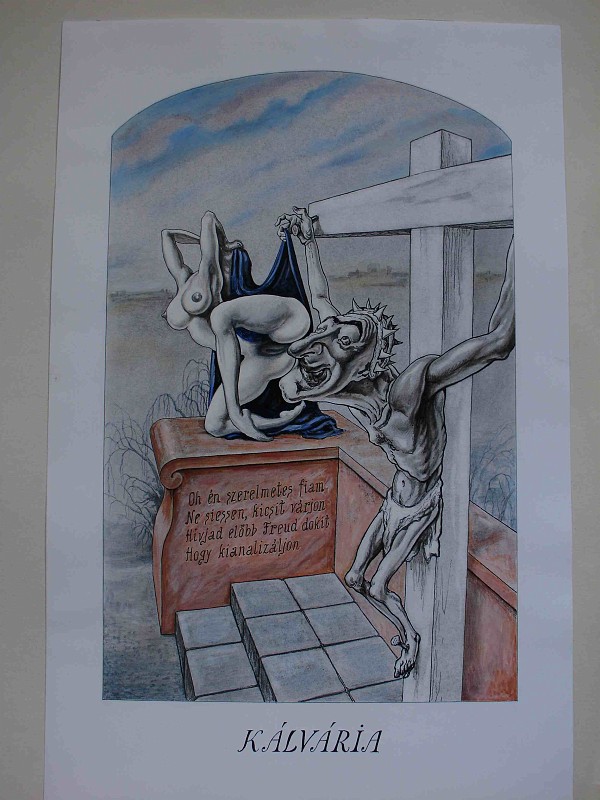 Oh én szerelmetes fiam
Ne siessen, kicsit várjon
Hívjad előbb Freud dokit
Hogy kianalizáljon
KÁLVÁRIA